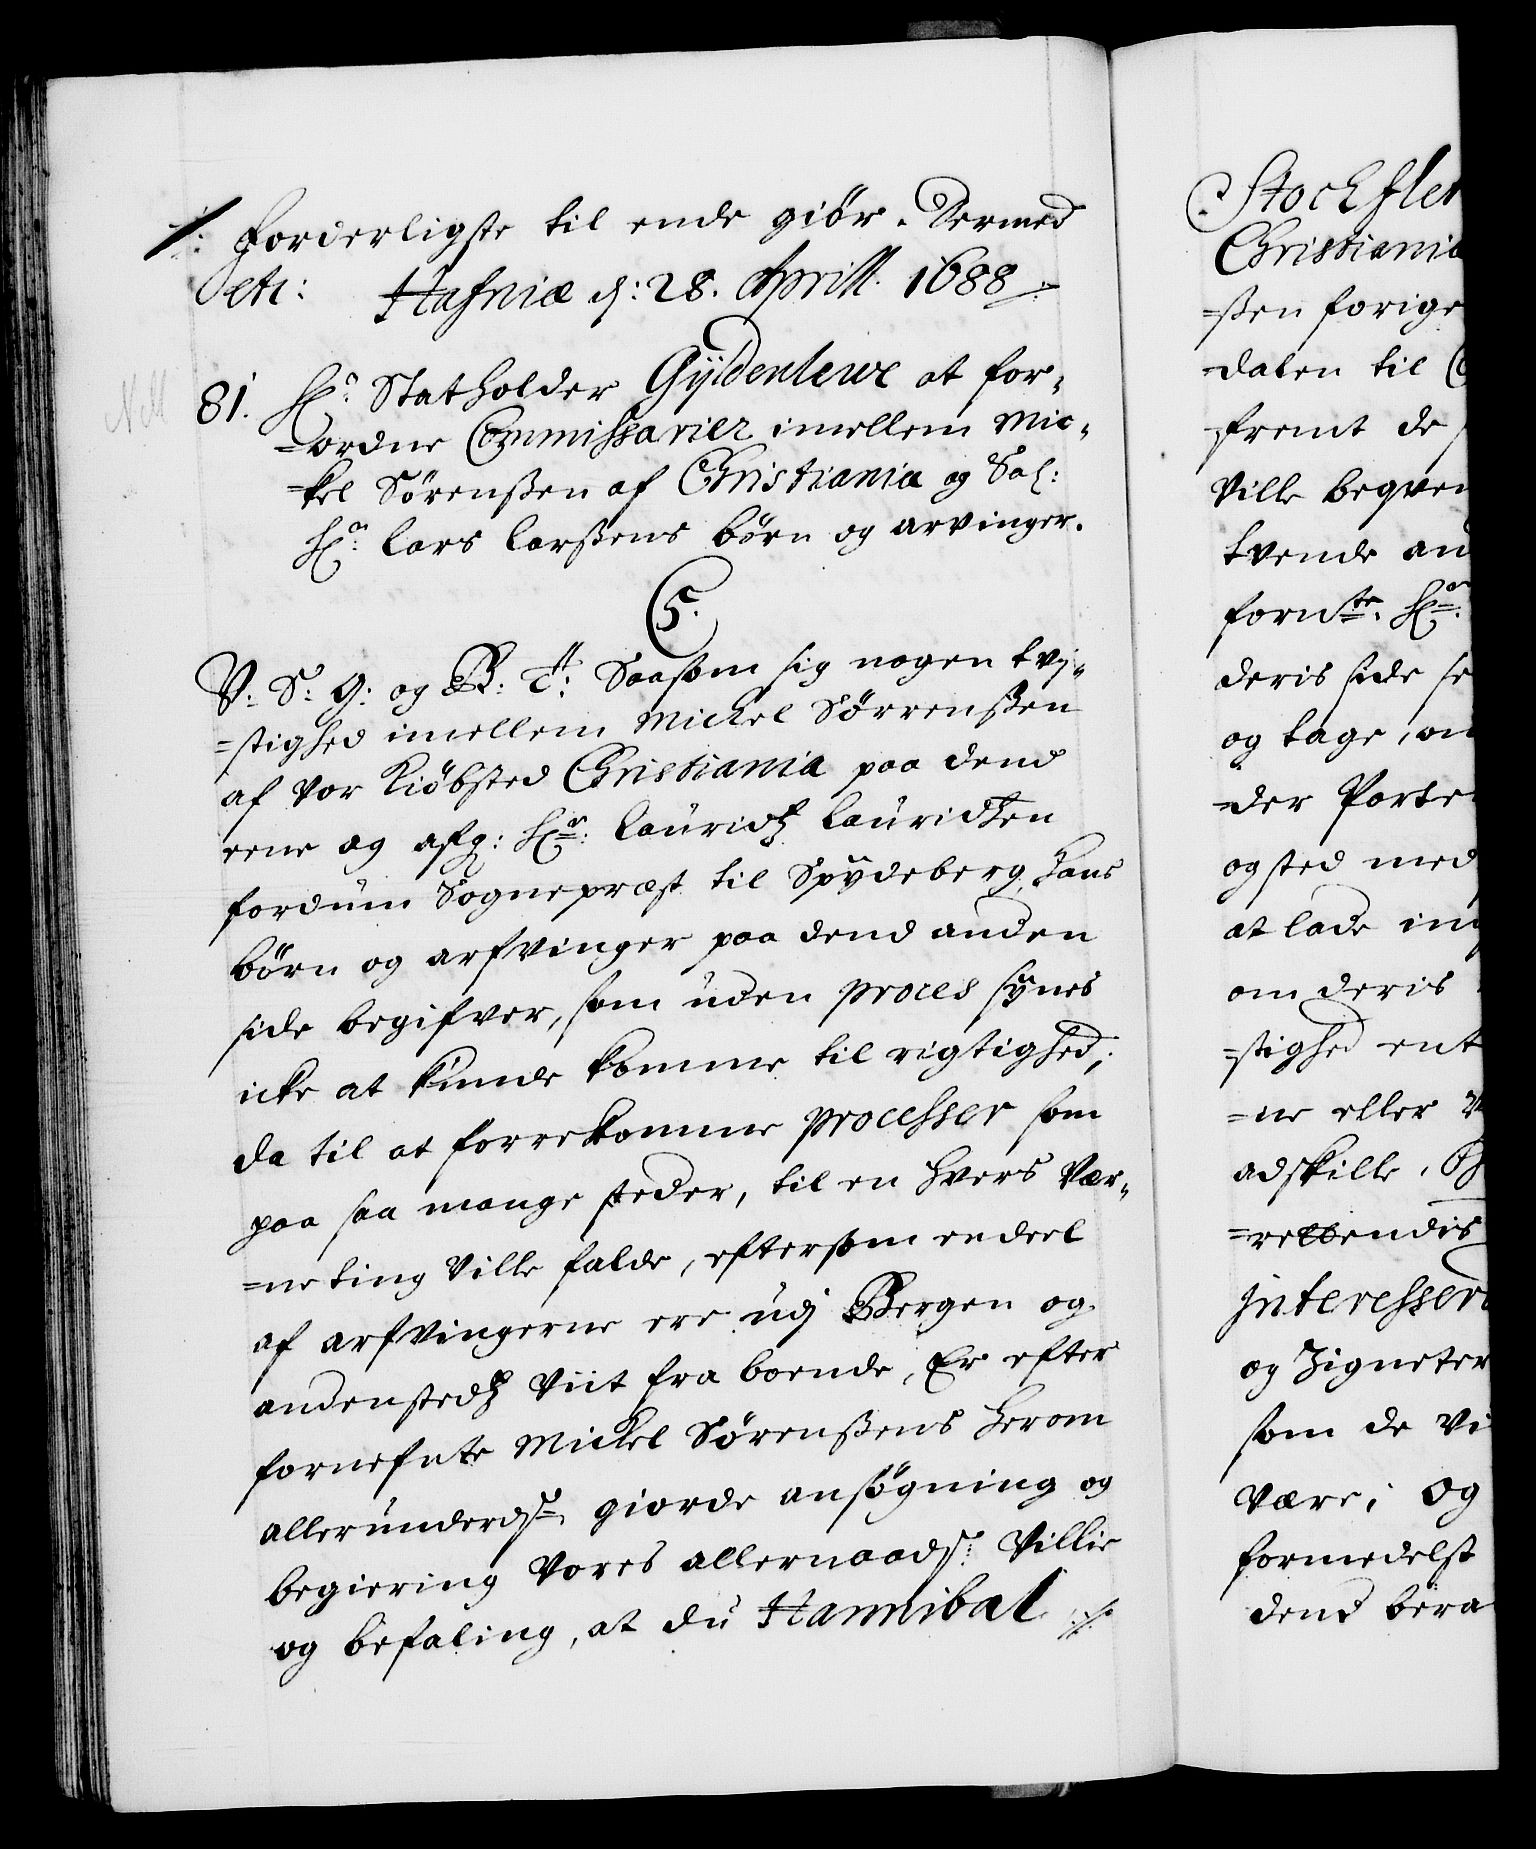 /: forderligste til ende giör. Dermed
etc: Hafniæ d: 28. Aprill. 1688 ./.
81. Hr. Statholder Gyldenlewe at for-
=ordne Commissarier imellem Mic-
=kel Sörenßen af Christiania og Sal:
Hr: Lars Larßens börn og arvinger.
C5.
V. S: G: og B: T: Saasom sig nogen tvj-
=stighed imellem Mickel Sörrenßen
af vor Kiöbsted Christiania paa dend
eene og afg: Hr: Lauridtz Lauridtzen
fordum Sognepræst til Spydeberg, hans
börn og arfvinger paa dend anden
side begifver, som uden proces synes
icke at kunde komme til rigtighed;
da til at forrekomme processer som
paa saa mange steder, til en hvers Vær-
=neting ville falde, eftersom endeel
af arfvingerne ere udj Bergen og
andenstedtz viit fra boende, Er efter
fornefnte Mickel Sörenßens herom
allerunderdst: giorde ansögning og
begiering Vores allernaadst: Villie
og befaling, at du Hannibal ./.
Stockflet
Christiania
=ßen forige
daten til
fremt de
Ville beqvem
tvende an
fornte. Hr:
deris side
og tage, om
=der Parte
og sted med
at lade in
om deris
=stighed ent
=ne eller
adskille,
=rettendis
Interesser
og Zigneter
som de vi
være; Og
formedelst
dend bera